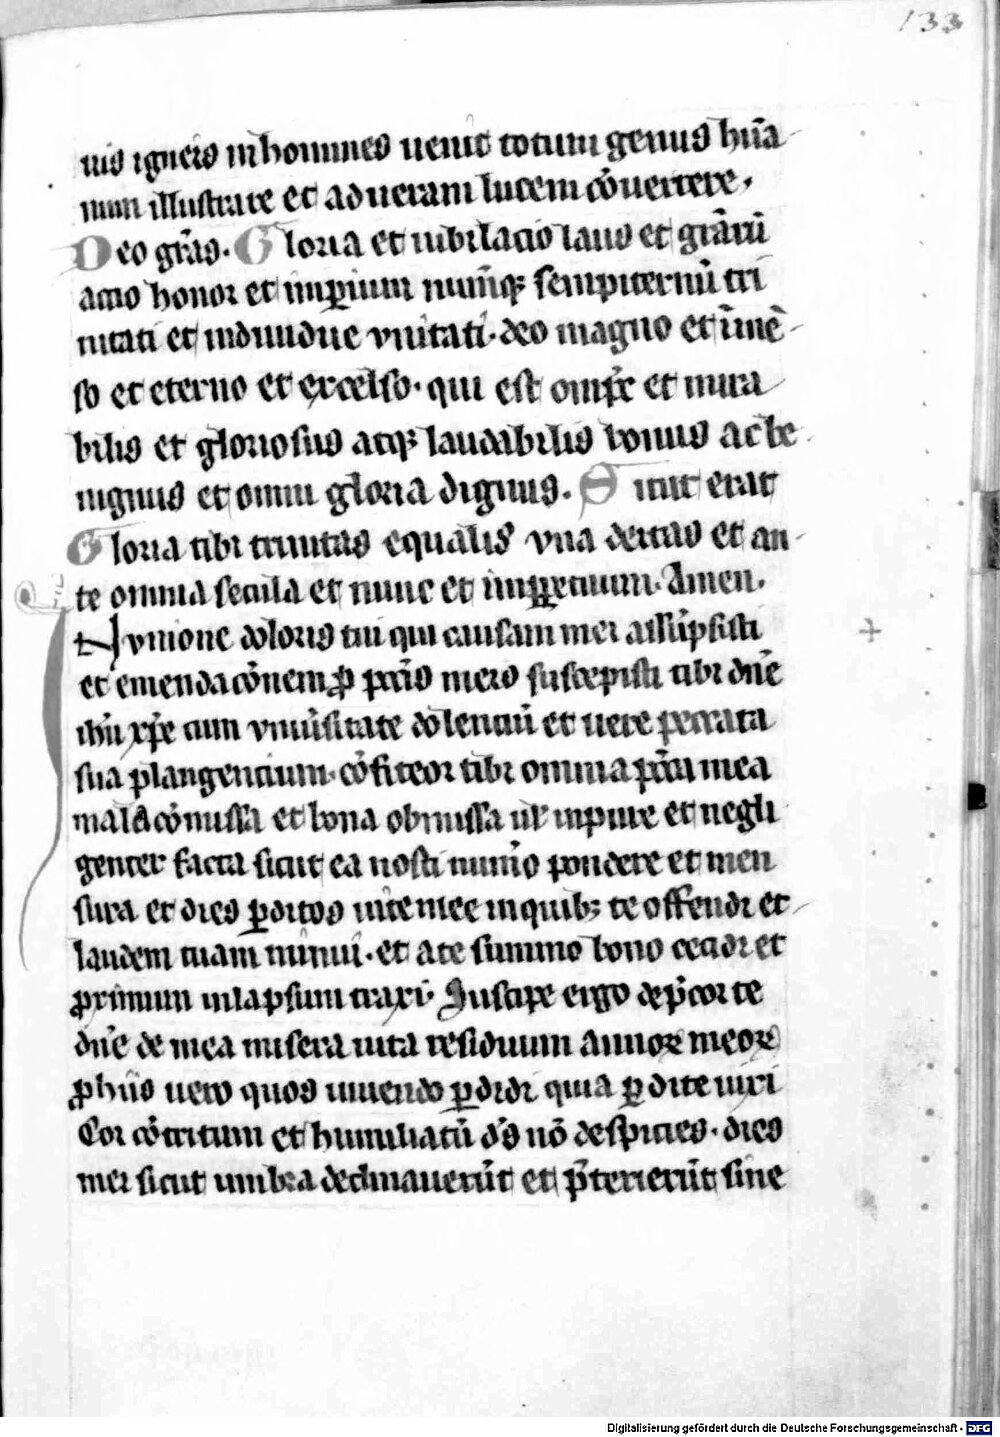 133
uis igneis in homines uenit totum genus hūa
num illustrare et ad ueram lucem cōuertere.
Deo grās. Gloria et iubilacio laus et grāru̅
actio honor et imꝑium numq̄ꝫ sempiternū tri
nitati et indiuidue vnitati. deo magno et īmē
so et eterno et excelso. qui est omp̄s et mira
bilis et gloriosus atqꝫ laudabilis bonus ac be
nignus et omni gloria dignus. Sicut erat
Gloria tibi trinitas equalis vna deitas et an
te omnia secula et nunc et imꝑpetuum. Amen.
In vnione doloris tui qui causam mei assūpsisti
et emendacōnem ꝓ pccīs meis suscepisti tibi dn̄e
ihū xp̄e cum vniūsitate dolenciū et uere peccata
sua plangencium. cōfiteor tibi omnia pccā mea
mala cōmissa et bona obmissa ul̄ inpure et negli
genter facta sicut ea nosti numīo pondere et men
sura et dies ꝑditos uite mee in quibꝫ te offendi et
laudem tuam minui. et a te summo bono cecidi et
ꝓximum in lapsum traxi. Suscipe ergo dep̄cor te
dn̄e de mea misera uita residuum annoꝝ meoꝝ
ꝓ hiis uero quos uiuendo ꝑdidi quia ꝑdite uixi
Cor cōtritum et humiliatū ds̄ nō despicies. dies
mei sicut umbra declinauerūt et p̄terierūt sine
Digitalisierung gefördert durch die Deutsche Forschungsgemeinschaft - DFG